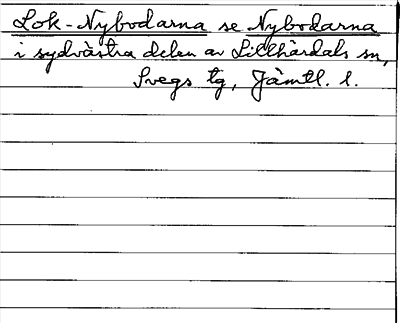 Lok-Nybodarna se Nybodarna
i sydvästra delen av Lillhärdals sn,
Svegs tg, Jämtl. l.